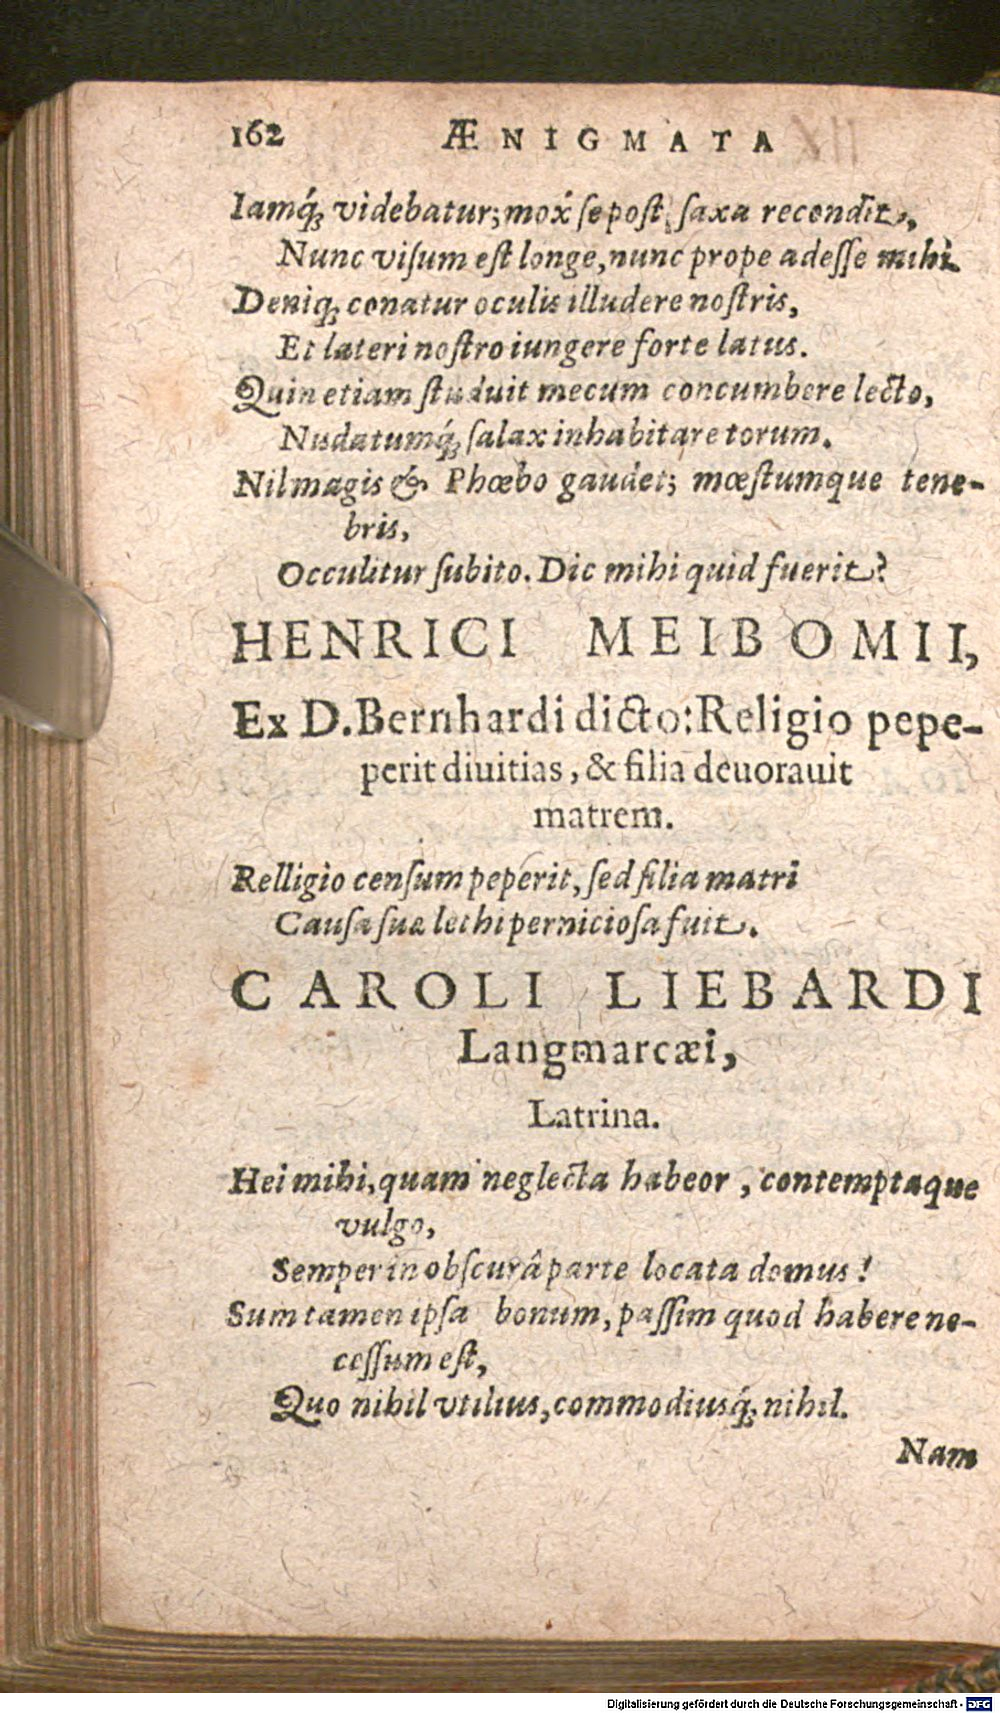 162 ÆNIGMATA
Iamq́; videbatur; mox́ se post saxa recondit,
Nunc visum est longe, nunc prope adesse mihi.
Deniq; conatur oculis illudere nostris,
Et lateri nostro iungere forte latus.
Quin etiam studuit mecum concumbere lecto,
Nudatumq́; salax inhabitare torum.
Nil magis & Phœbo gaudet; mœstumque tene-
bris,
Occulitur subito. Dic mihi quid fuerit?
HENRICI MEIBOMII,
Ex D. Bernhardi dicto: Religio pepe-
perit diuitias, & filia deuorauit
matrem.
Relligio censum peperit, sed filia matri
Causa suæ lethi perniciosa fuit.
CAROLI LIEBARDI
Langmarcæi,
Latrina.
Hei mihi, quam neglecta habeor, contemptaque
vulgo,
Semper in obscurâ parte locata domus!
Sum tamen ipsa bonum, passim quod habere ne-
cessum est,
Quo nihil vtilius, commodiusq́; nihil.
Nam
Digitalisierung gefördert durch die Deutsche Forschungsgemeinschaft - DFG